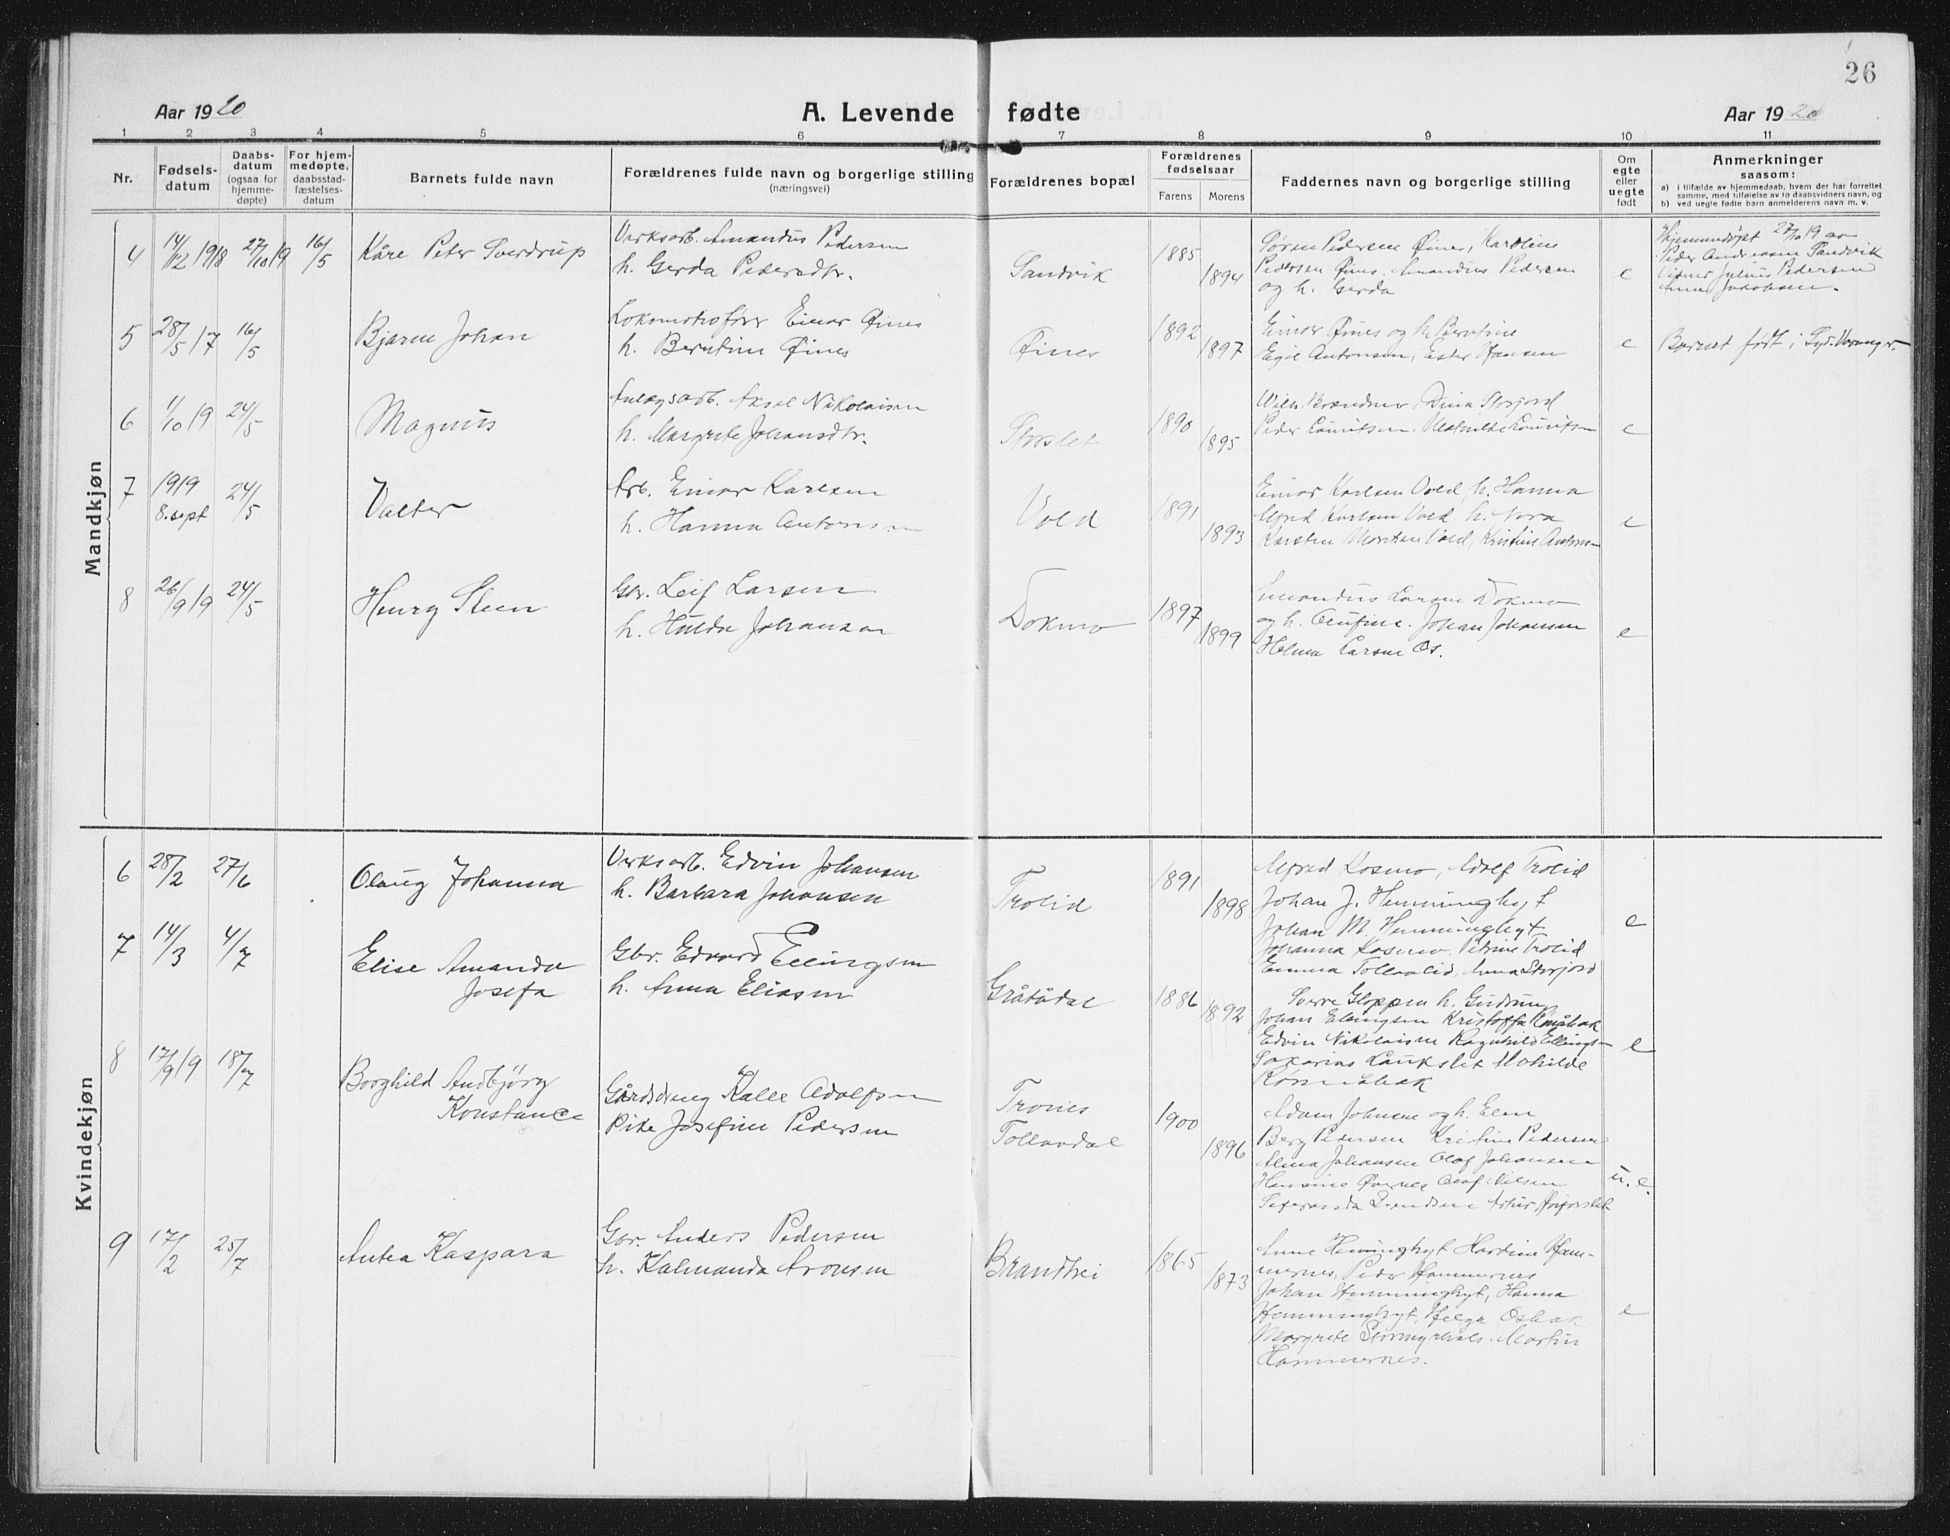 26
Aar 1920
A. Levende fødte
Aar 1920
1 2 3 4 5 6 7 8 9 10 11
Nr.
Fødsels-
datum
Daabs-
datum
(ogsaa for
hjemme-
døpte)
For hjem-
medøpte,
daabsstad-
fæstelses-
datum
Barnets fulde navn
Forældrenes fulde navn og borgerlige stilling
(næringsvei)
Forældrenes bopæl
Forældrenes
fødselsaar
Farens Morens
Faddernes navn og borgerlige stilling
Om
egte
eller
uegte
født
Anmerkninger
saasom:
a) i tilfælde av hjemmedaab, hvem der har forrettet
samme, med tilføielse av to daabsvidners navn, og
b) ved uegte fødte barn anmelderens navn m. v.
Mandkjøn
4 14/12 1918 27/10 19 16/5
Kåre Peter Sverdrup
Verksarb. Amandus Pedersen
h. Gerda Pedersdtr.
Sandvik
1885 1894
Søren Pedersen Øines, Karoline
Pedersen Øines, Amandus Pedersen
og h. Gerda
e
Hjemmedøpt 27/10 19 av
Peder Andreasen Sandvik
Julius Pedersen
5 28/5 17 16/5
Bjarne Johan
Lokomotivfører Einar Øines
h. Berntine Øines
Øines
1892 1897
Einar Øines og h. Berntine
Egil Antonsen, Ester Hansen
e
Barnet født i Syd-Varanger.
6 1/10 19 24/5
Magnus
Anlægsarb. Aksel Nikolaisen
h. Margrete Johansdtr.
Storslet
1890 1895
Dina Storjord
Peder Lauritsen, Mathilde Lauritsen
e
7 1919 8. sept 24/5
Valter
Arb. Einar Karlsen
h. Hanna Antonsen
Vold
1891 1893
Einar Karlsen Vold, h. Hanna
Alfred Karlsen Vold h. Nora
Karsten Vold, Kristine Antonsen
e
8 26/9 19 24/5
Henry Steen
Gbr. Leif Larsen
h. Hulda Johansen
Dokmo
1897 1899
Amandus Larsen Dokmo
og h. Olufine. Johan Johansen
Helma Larsen Os.
e
Kvindekjøn
6 28/2 27/6
Olaug Johanna
Verksarb. Edvin Johansen
h. Barbara Johansen
Trolid
1891 1898
Alfred Kosmo, Adolf Trolid
Johan J. Hemminghyt
Johan M. Hemminghyt
Johanna Kosmo, Petrine Trolid
Emma Tollaalid, Anna Storjord
e
7 14/3 4/7
Elise Amanda
Josefa
Gbr. Edvard Ellingsen
h. Anna Eliasen
Gråtådal
1886 1892
Sverre Gloppen h. Gudrun
Johan Ellingsen
Edvin Nikolaisen Ragnhild Ellings-
Sakarias Mathilde
e
8 17/9 19 18/7
Borghild Andbjørg
Konstance
Gårddreng Kalle Adolfsen
Pike Josefine Pedersen
Trones
Tollaadal
1900 1896
Adam Johnsen og h. Elen
Berg Pedersen Kristine Pedersen
Alma Johansen Olaf Johansen
Olaf Nilsen
u. e.
9 17/2 25/7
Antea Kaspara
Gbr. Anders Pedersen
h. Kalmanda Aronsen
Brandhei
1865 1873
Anne Hemminghyt Hardine Ham-
mernes, Peder Hammernes
Johan Hemminghyt, Hanna
Hemminghyt, Helga Osbak
Margrete Martin
Hammernes.
e